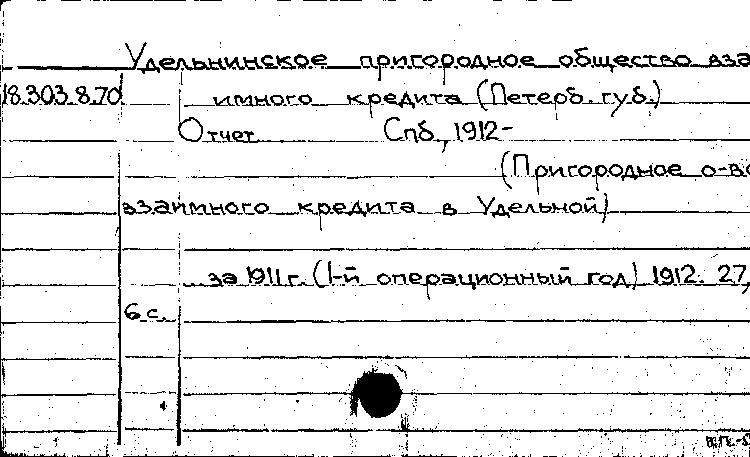 Удельнинское пригородное общество вза
18.303.8.70 имного кредита (Петерб. губ.)
Отчет Спб., 1912-
(Пригородное о-во
взаимного кредита в Удельной)
за 1911 г. (1-й операционный год) 1912. 27,
6 с.